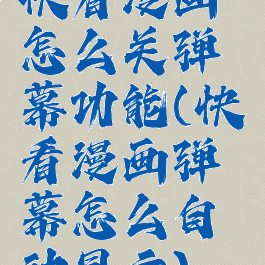 快看漫画
怎么关弹
幕功能(快
看漫画弹
幕怎么自
动显示)